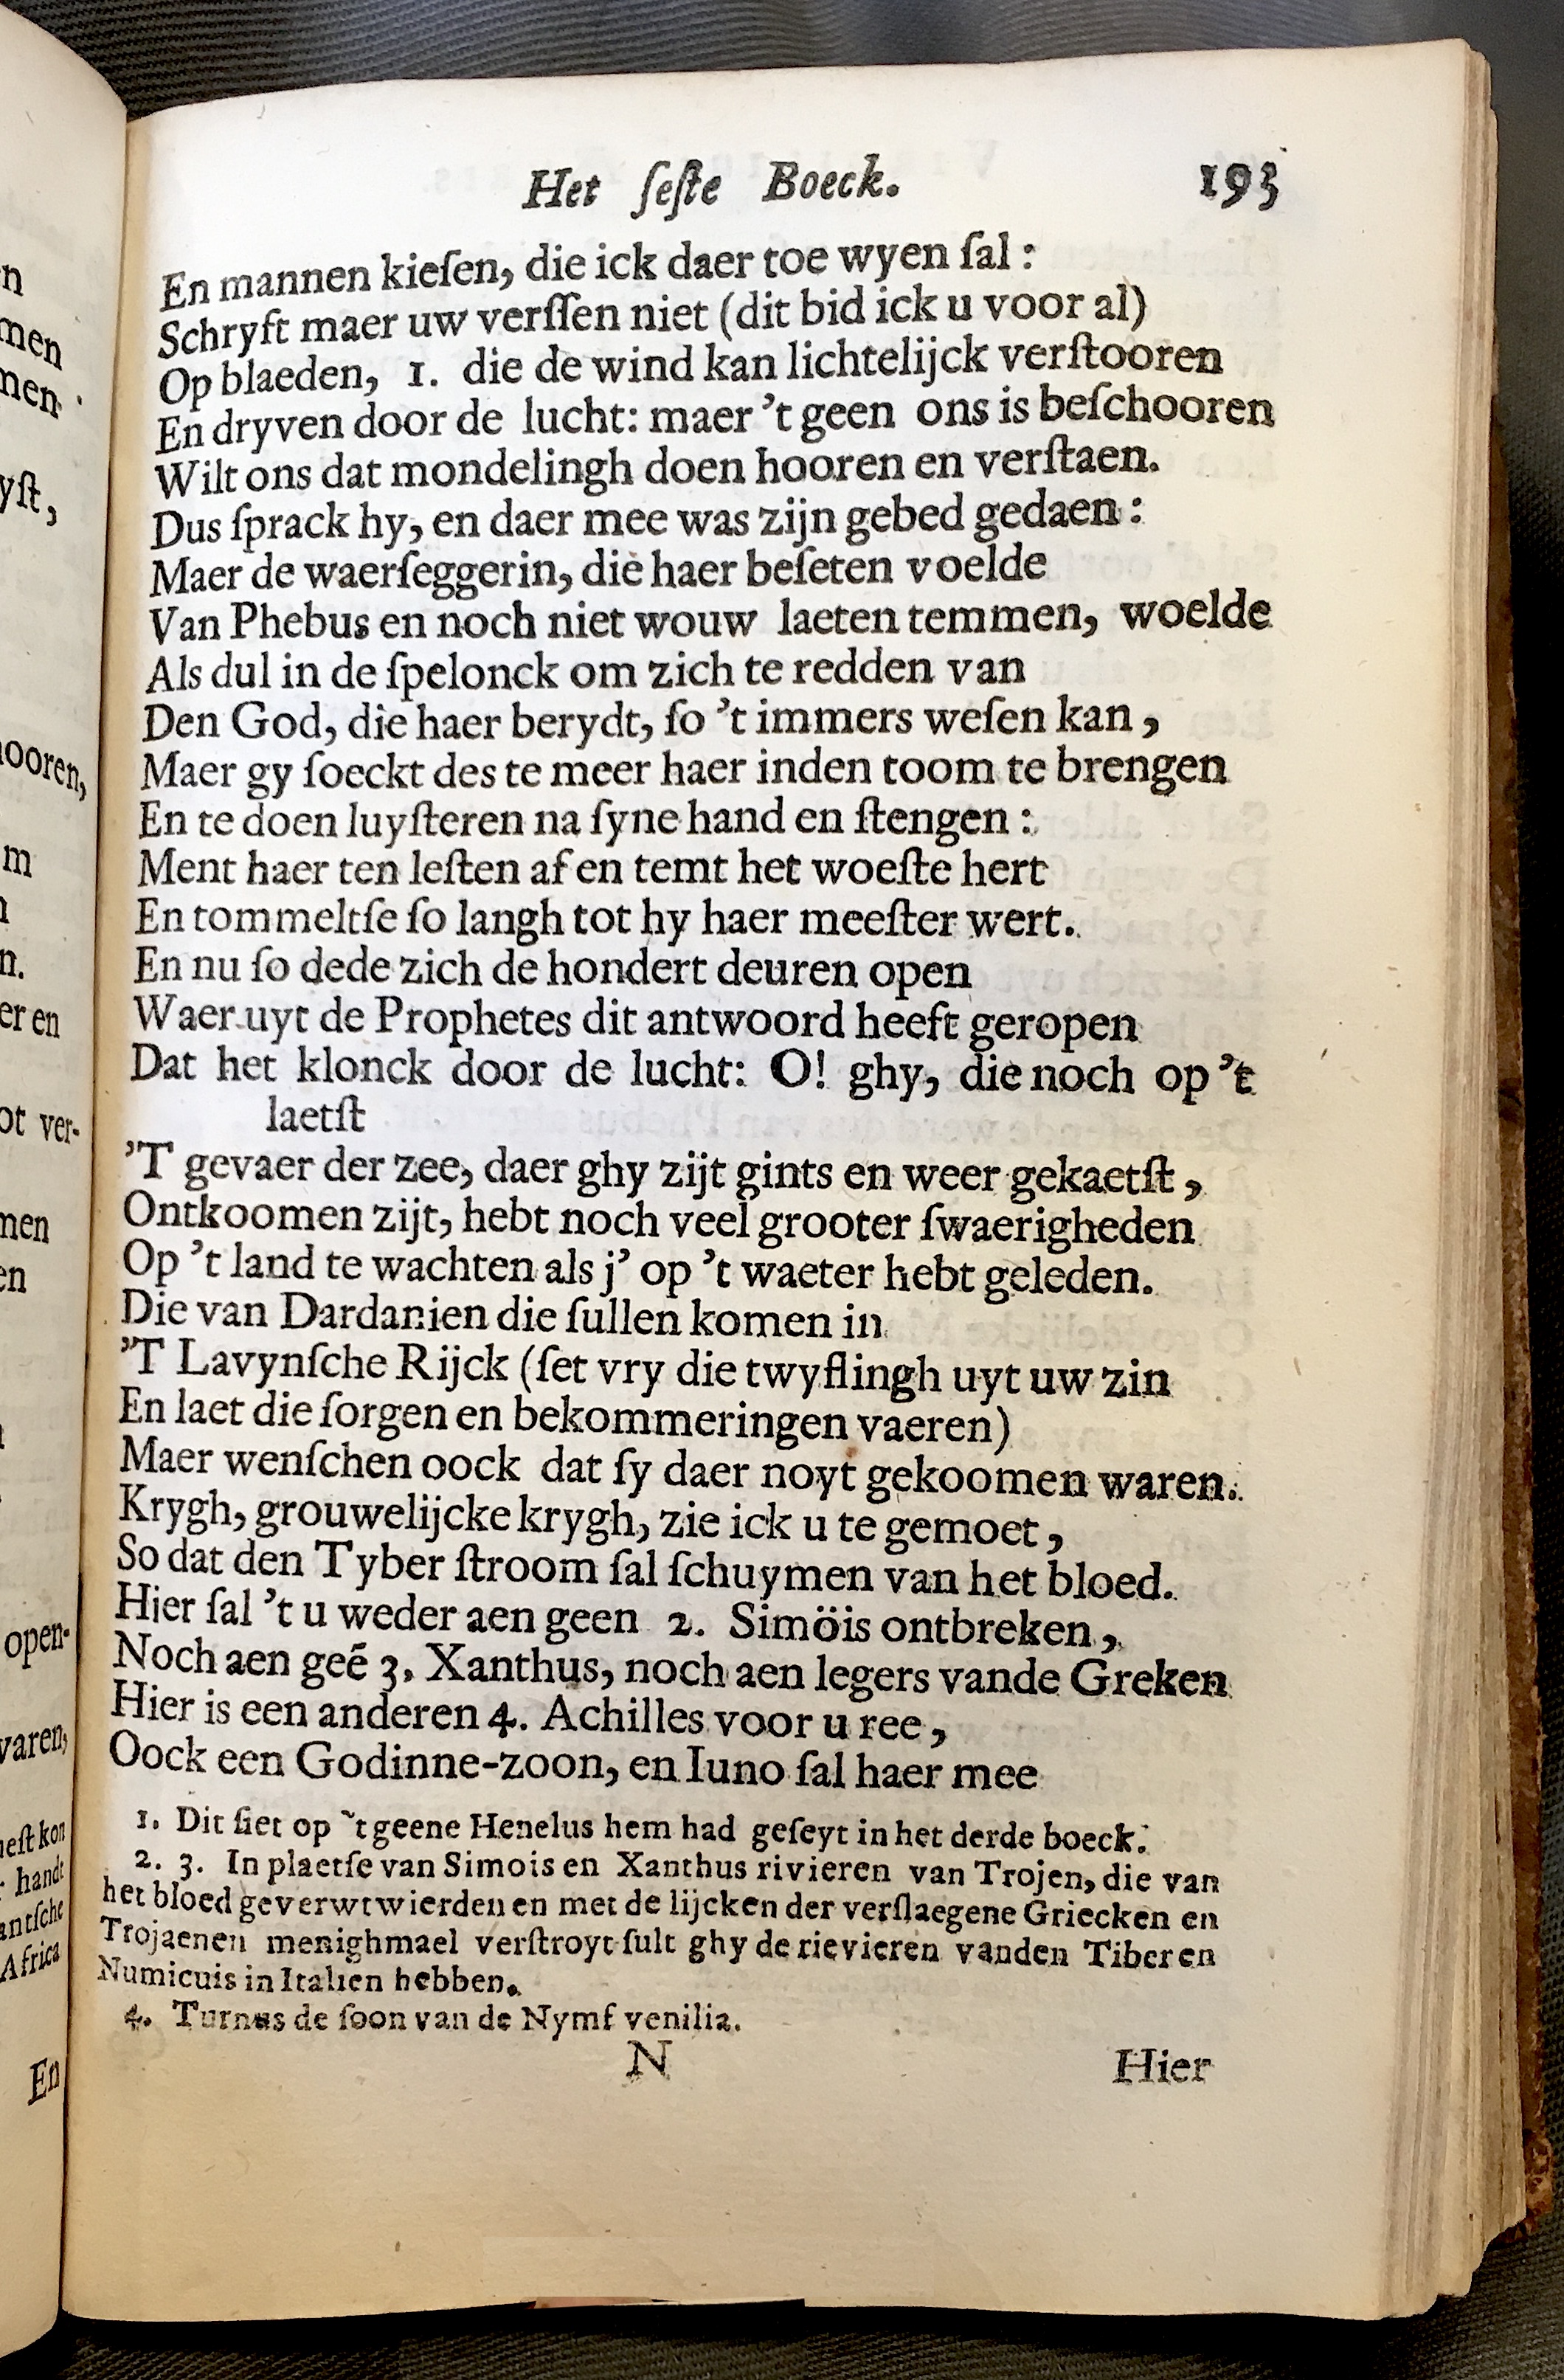 Het ſeſte Boeck. 193
En mannen kieſen, die ick daer toe wyen ſal :
Schryft maer uw verſſen niet (dit bid ick u voor al)
Op blaeden, 1. die de wind kan lichtelijck verſtooren
En dryven door de lucht: maer 't geen ons is beſchooren
Wilt ons dat mondelingh doen hooren en verſtaen.
Dus ſprack hy, en daer mee was zijn gebed gedaen :
Maer de waerſeggerin, die haer beſeten voelde
Van Phebus en noch niet wouw laeten temmen, woelde
Als dul in de ſpelonck om zich te redden van
Den God, die haer berydt, ſo 't immers weſen kan,
Maer gy ſoeckt des te meer haer inden toom te brengen
En te doen luyſteren na ſyne hand en ſtengen :
Ment haer ten leſten af en temt het woeſte hert
En tommeltſe ſo langh tot hy haer meeſter wert.
En nu ſo dede zich de hondert deuren open
Waer uyt de Prophetes dit antwoord heeft geropen
Dat het klonck door de lucht: O! ghy, die noch op 't
laetſt
'T gevaer der zee, daer ghy zijt gints en weer gekaetſt,
Ontkoomen zijt, hebt noch veel grooter ſwaerigheden
Op 't land te wachten als j' op 't waeter hebt geleden.
Die van Dardanien die ſullen komen in
'T Lavynſche Rijck (ſet vry die twyflingh uyt uw zin
En laet die ſorgen en bekommeringen vaeren)
Maer wenſchen oock dat ſy daer noyt gekoomen waren.
Krygh, grouwelijcke krygh, zie ick u te gemoet,
So dat den Tyber ſtroom ſal ſchuymen van het bloed.
Hier ſal 't u weder aen geen 2. Simöis ontbreken,
Noch aen geē 3. Xanthus, noch aen legers vande Greken
Hier is een anderen 4. Achilles voor u ree,
Oock een Godinne-zoon, en Iuno ſal haer mee
1. Dit ſiet op ˜t geene Henelus hem had geſeyt in het derde boeck.
2. 3. In plaetſe van Simois en Xanthus rivieren van Trojen, die van
het bloed geverwt wierden en met de lijcken der verſlaegene Griecken en
Trojaenen menighmael verſtroyt ſult ghy de rievieren vanden Tiber en
Numicuis in Italien hebben.
4. Turnus de ſoon van de Nymf venilia.
N Hier